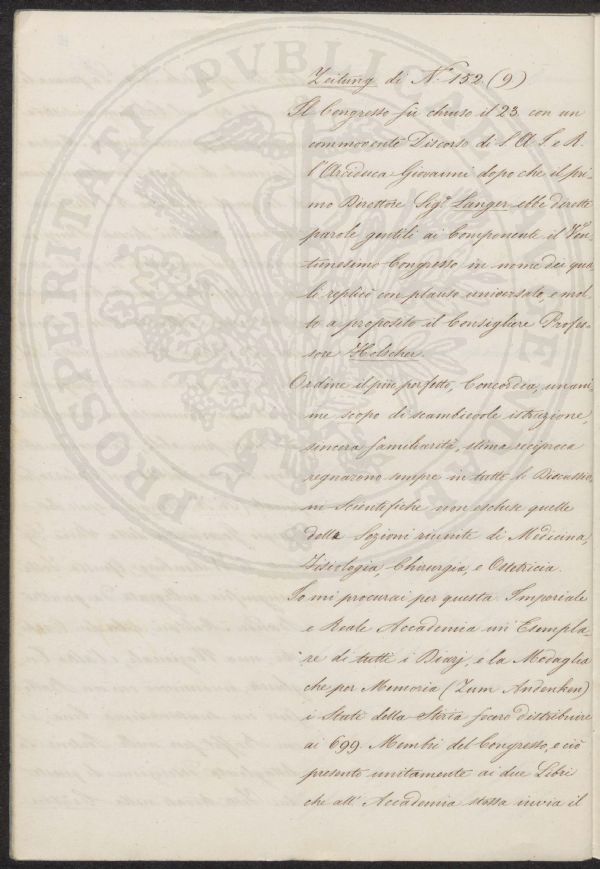 Zeitung di N.º 152 (9)
Il Congresso fù chiuso il 23 con un
commovente Discorso di S. A. I. e R.
l'Arciduca Giovanni dopo che il pri-
mo Direttore Sig.r Langer ebbe dirette
parole gentili ai Componente il Ven-
tunesimo Congresso, in nome dei qua-
li replicò con plauso universale, e mol-
to a proposito il Consigliere Profes-
sore Holscher.
Ordine il più perfetto, Concordia, unani-
me scopo di scambievole istruzione,
sincera familiarità, stima reciproca
regnarono sempre in tutte le Discussio-
ni Scientifiche non escluse quelle
delle Sezioni riunite di Medicina,
Fisiologia, Chirurgia, e Ostetricia.
Io mi procurai per questa Imperiale
e Reale Accademia un' Esempla-
re di tutti i Diarj, e la Medaglia
che per Memoria (Zum Andenken)
i Stati della Stiria fecero distribuire
ai 699. Membri del Congresso, e ciò
presento unitamente ai due Libri
che all' Accademia stessa invia il
PROSPERITATI PUBLICAE AU